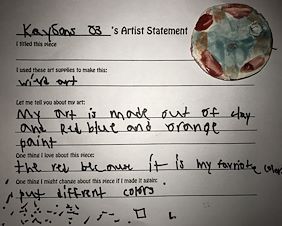 's Artist Statement
I titled this piece
I used these art supplies to make this:
art
Let me tell you about my art:
My art is made out of clay
and Red blue and orange
paint
One thing I love about this piece:
the red because it is my favriote color
One thing I might change about this piece if I made it again:
put diffrent colors